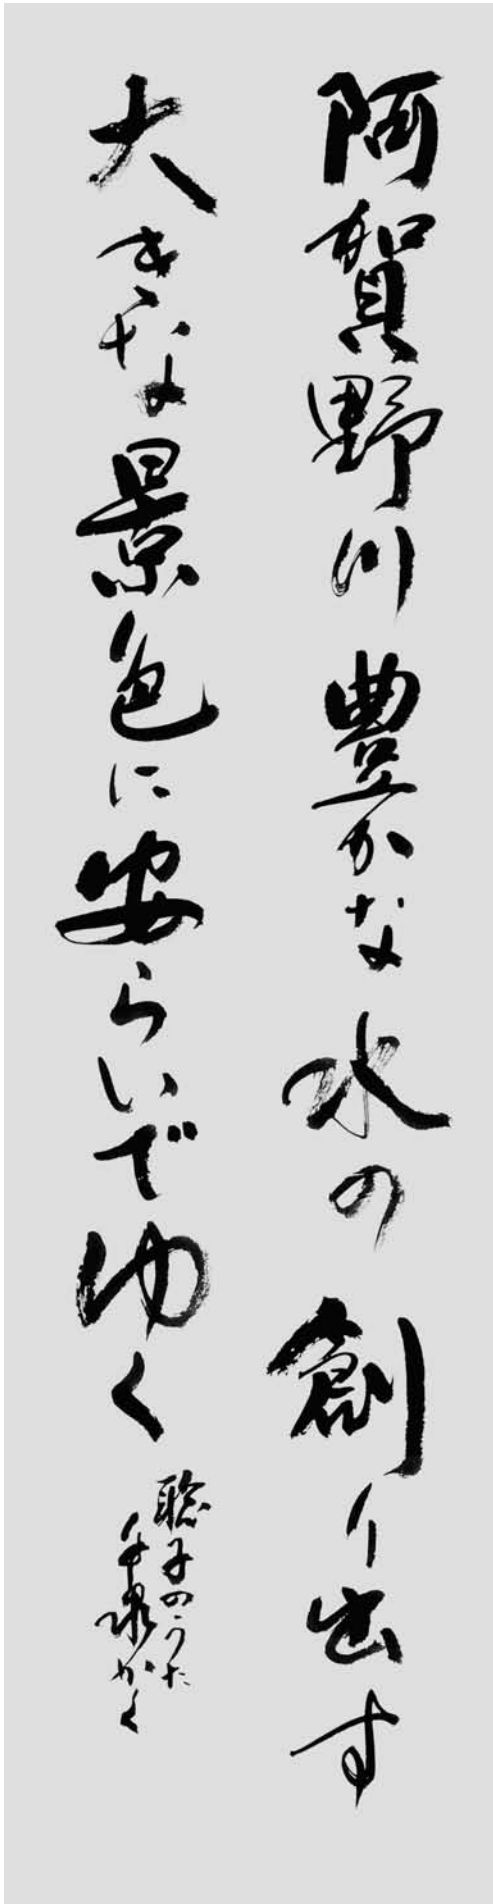 阿賀野川豊かな水の創り出す
大きな景色に安らいでゆく
聡子のうた
かく